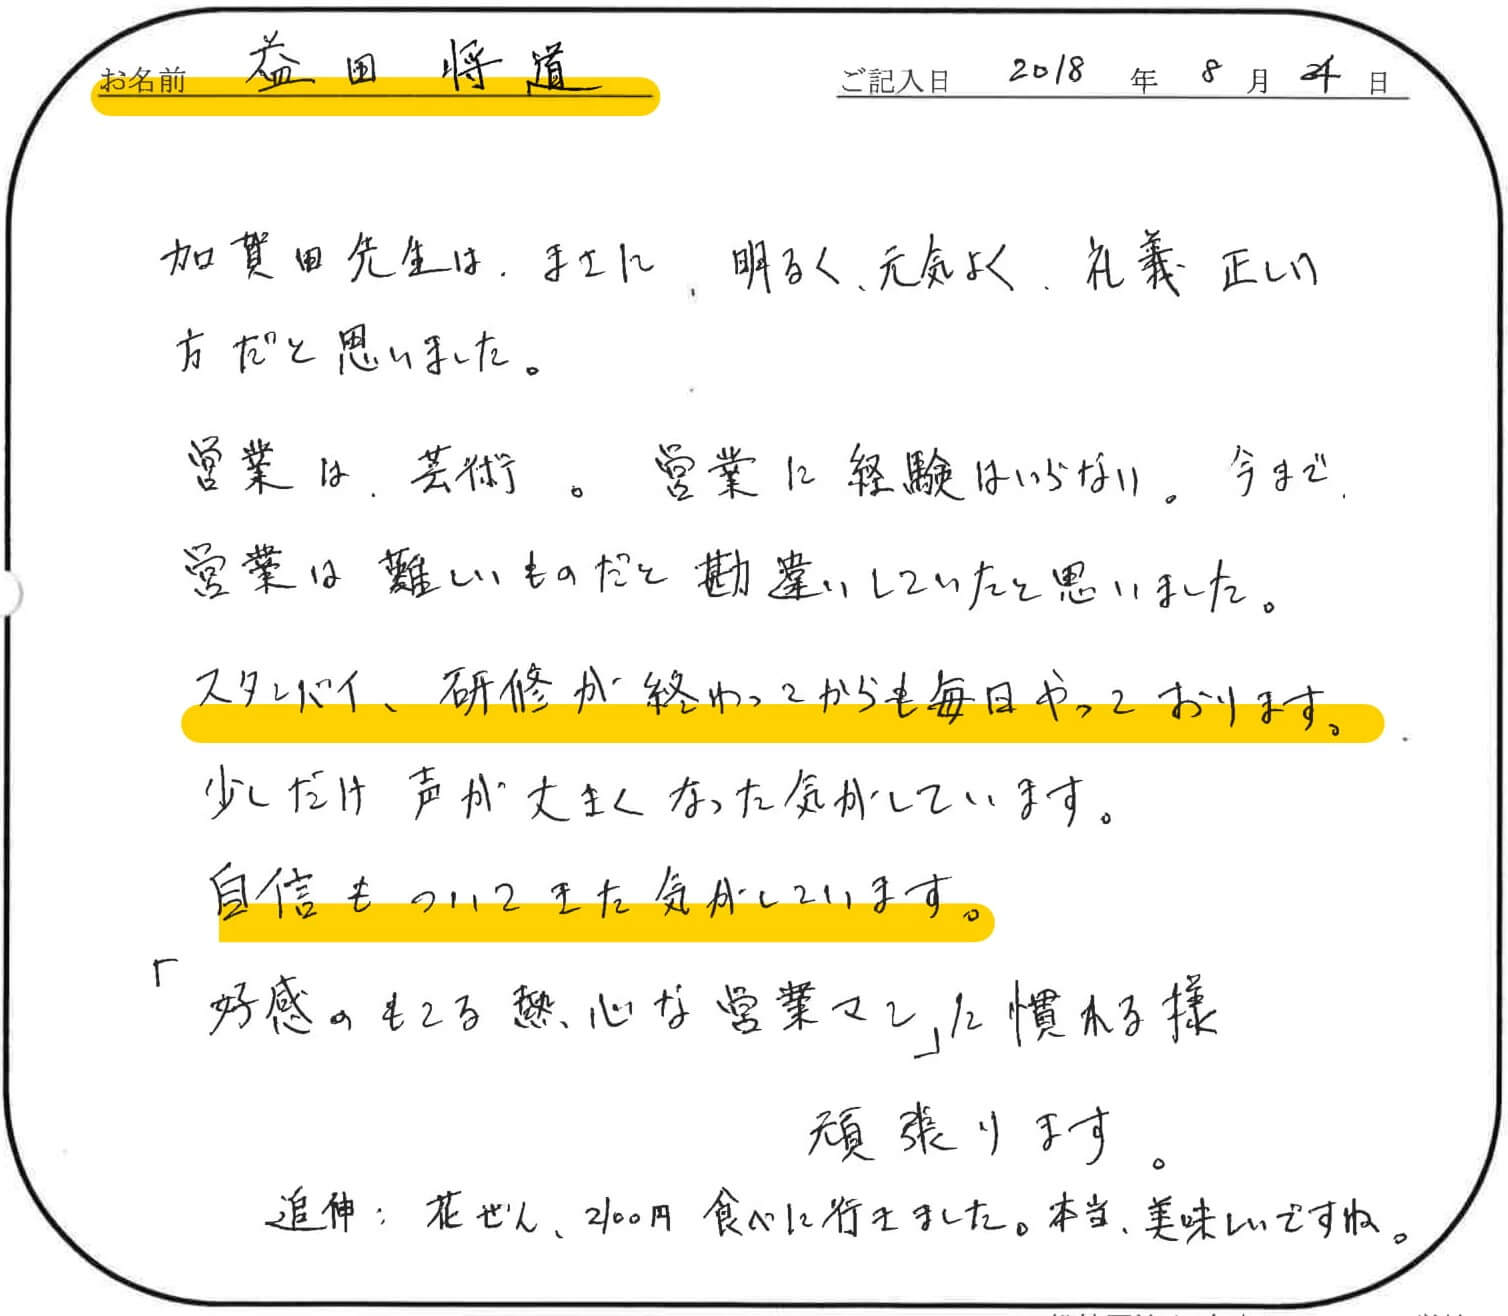 お名前 益田将道 ご記入日 2018年8月24日
加賀田先生は、まさに、明るく、元気よく、礼義正しい
方だと思いました。
営業は、芸術。営業に経験はいらない。今まで、
営業は難しいものだと勘違いしていたと思いました。
スタンバイ、研修が終わってからも毎日やっております。
少しだけ声が大きくなった気がしています。
自信もついてきた気がしています。
「好感のもてる熱心な営業マン」に慣れる様
頑張ります。
追伸：花ぜん、2100円食べに行きました。本当、美味しいですね。